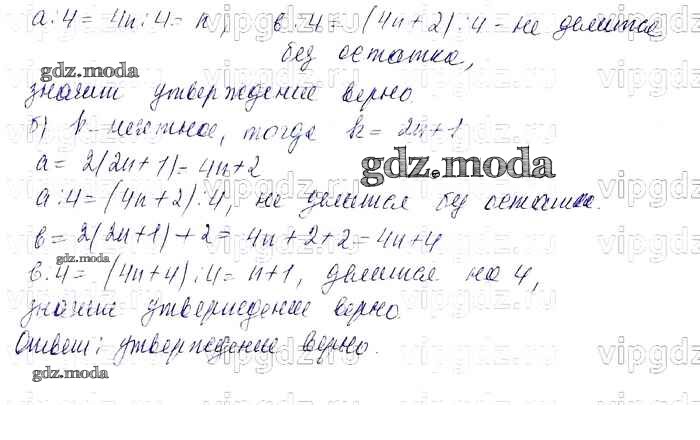 a:4 = 4n:4 = n, в:4 = (4n+2):4 - не делится
без остатка,
gdz.moda
значит утверждение верно
б) k - нечётное, тогда k = 2n+1
a = 2(2n+1) = 4n+2
gdz.moda
a:4 = (4n+2):4, не делится без остатка.
в = 2(2n+1)+2 = 4n+2+2 = 4n+4
gdz.moda
в:4 = (4n+4):4 = n+1, делится на 4,
значит утверждение верно.
Ответ: утверждение верно.
gdz.moda